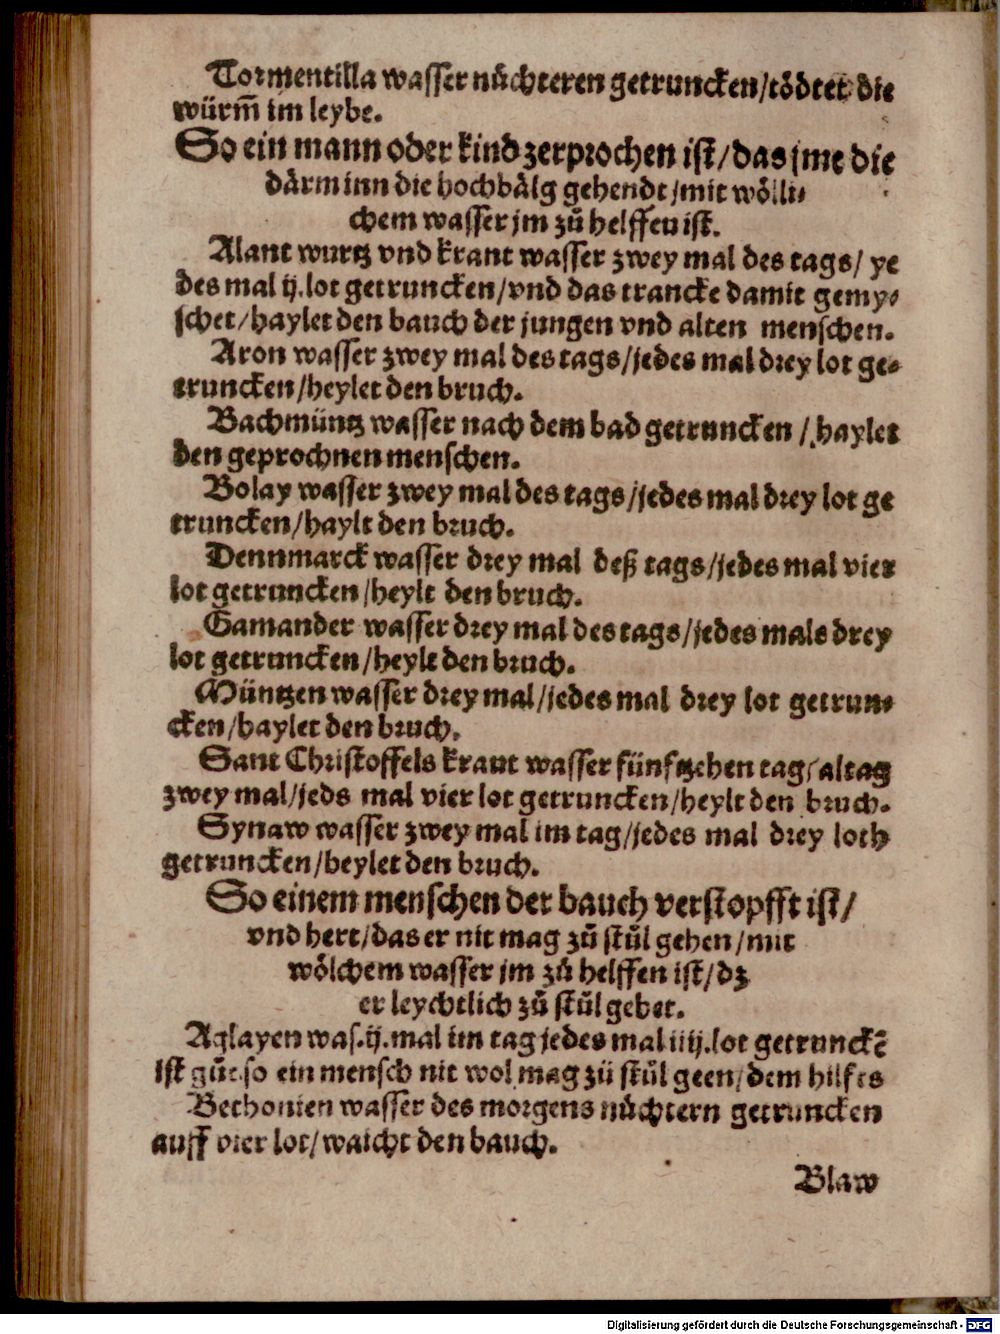 Tormentilla wasser nüchteren getruncken/tödtet die
würm̃ im leybe.
So ein mann oder kind zerprochen ist/das jme die
därm inn die hochbälg gehendt/mit wölli⸗
chem wasser jm zů helffen ist.
Alant wurtz vnd kraut wasser zwey mal des tags/ ye
des mal ij.lot getruncken/vnd das trancke damit gemy⸗
schet/haylet den bauch der jungen vnd alten menschen.
Aron wasser zwey mal des tags/jedes mal drey lot ge⸗
truncken/heylet den bruch.
Bachmüntz wasser nach dem bad getruncken/haylet
den geprochnen menschen.
Bolay wasser zwey mal des tags/jedes mal drey lot ge
truncken/haylt den bruch.
Dennmarck wasser drey mal deß tags/jedes mal vier
lot getruncken/heylt den bruch.
Gamander wasser drey mal des tags/jedes mals drey
lot getruncken/heylt den bruch.
Müntzen wasser drey mal/jedes mal drey lot getrun⸗
cken/haylet den bruch.
Sant Christoffels kraut wasser fünftzehen tag/altag
zwey mal/jeds mal vier lot getruncken/heylt den bruch.
Synaw wasser zwey mal im tag/jedes mal drey loth
getruncken/heylet den bruch.
So einem menschen der bauch verstopfft ist/
vnd hert/das er nit mag zů stůl gehen/mit
wölchem wasser jm zů helffen ist/dz
er leychtlich zů stůl gehet.
Aglayen was.ij.mal im tag jedes mal iiij.lot getrunckẽ
ist gůt.so ein mensch nit wol mag zů stůl geen/dem hilfts
Bethonien wasser des morgens nüchtern getruncken
auff vier lot/waicht den bauch.
Blaw
Digitalisierung gefördert durch die Deutsche Forschungsgemeinschaft - DFG